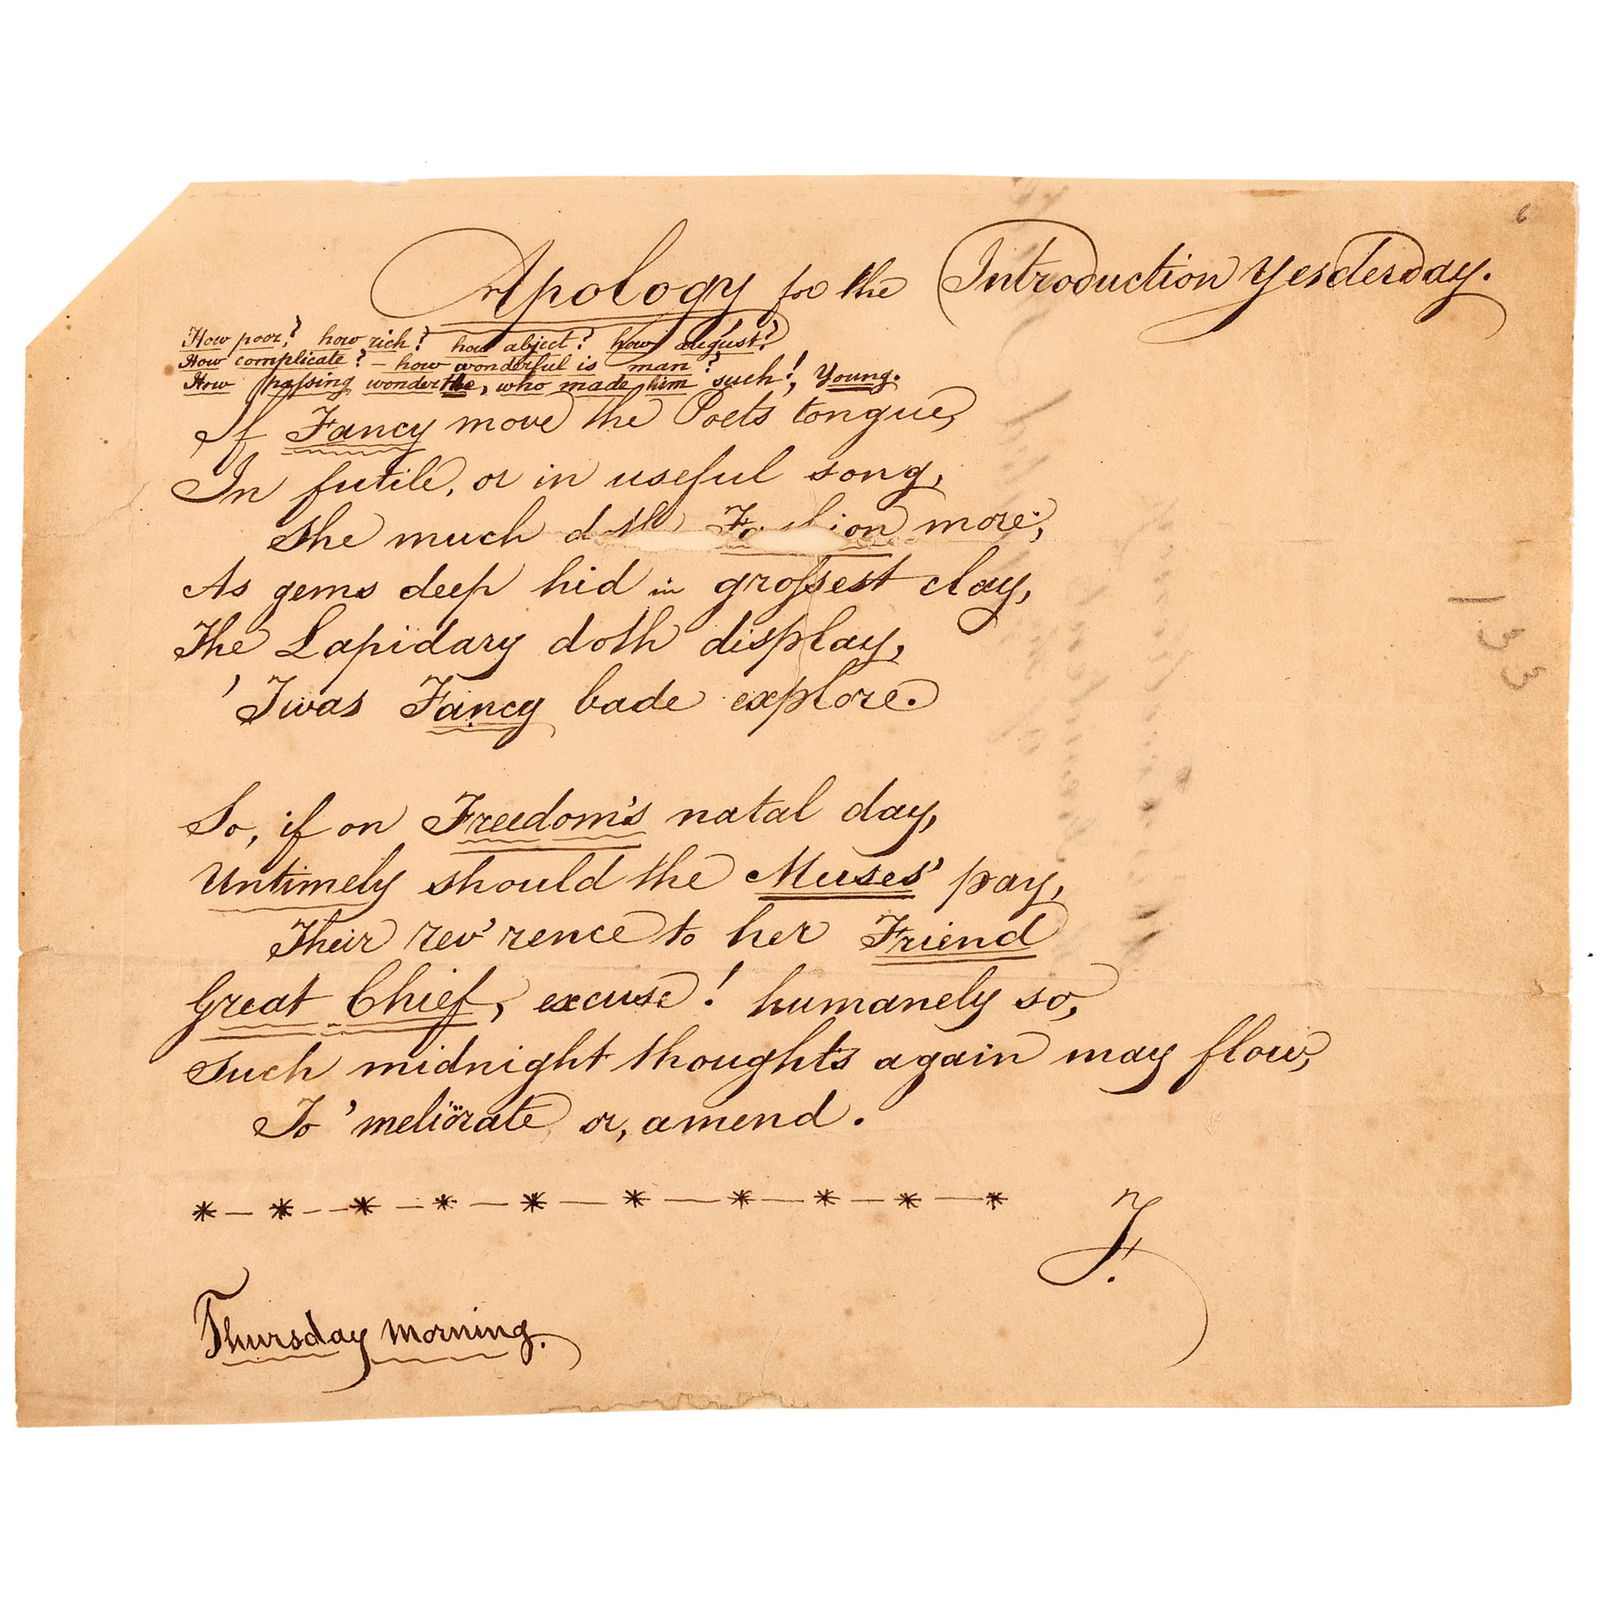 6
Apology for the Introduction Yesterday.
How poor? how rich? how abject? how august?
How complicate? – how wonderful is man?
How passing wonder He, who made him such!, Young.
If Fancy move the Poets tongue,
In futile, or in useful song,
She much doth more;
As gems deep hid in grossest clay,
The Lapidary doth display,
'Twas Fancy bade explore.
So, if on Freedom's natal day,
Untimely should the Muses' pay,
Their rev'rence to her Friend
Great Chief, excuse! humanely so,
Such midnight thoughts again may flow,
To 'meliörate or, amend.
* — * — * — * — * — * — * — * — * — *
F.
Thursday Morning.
133